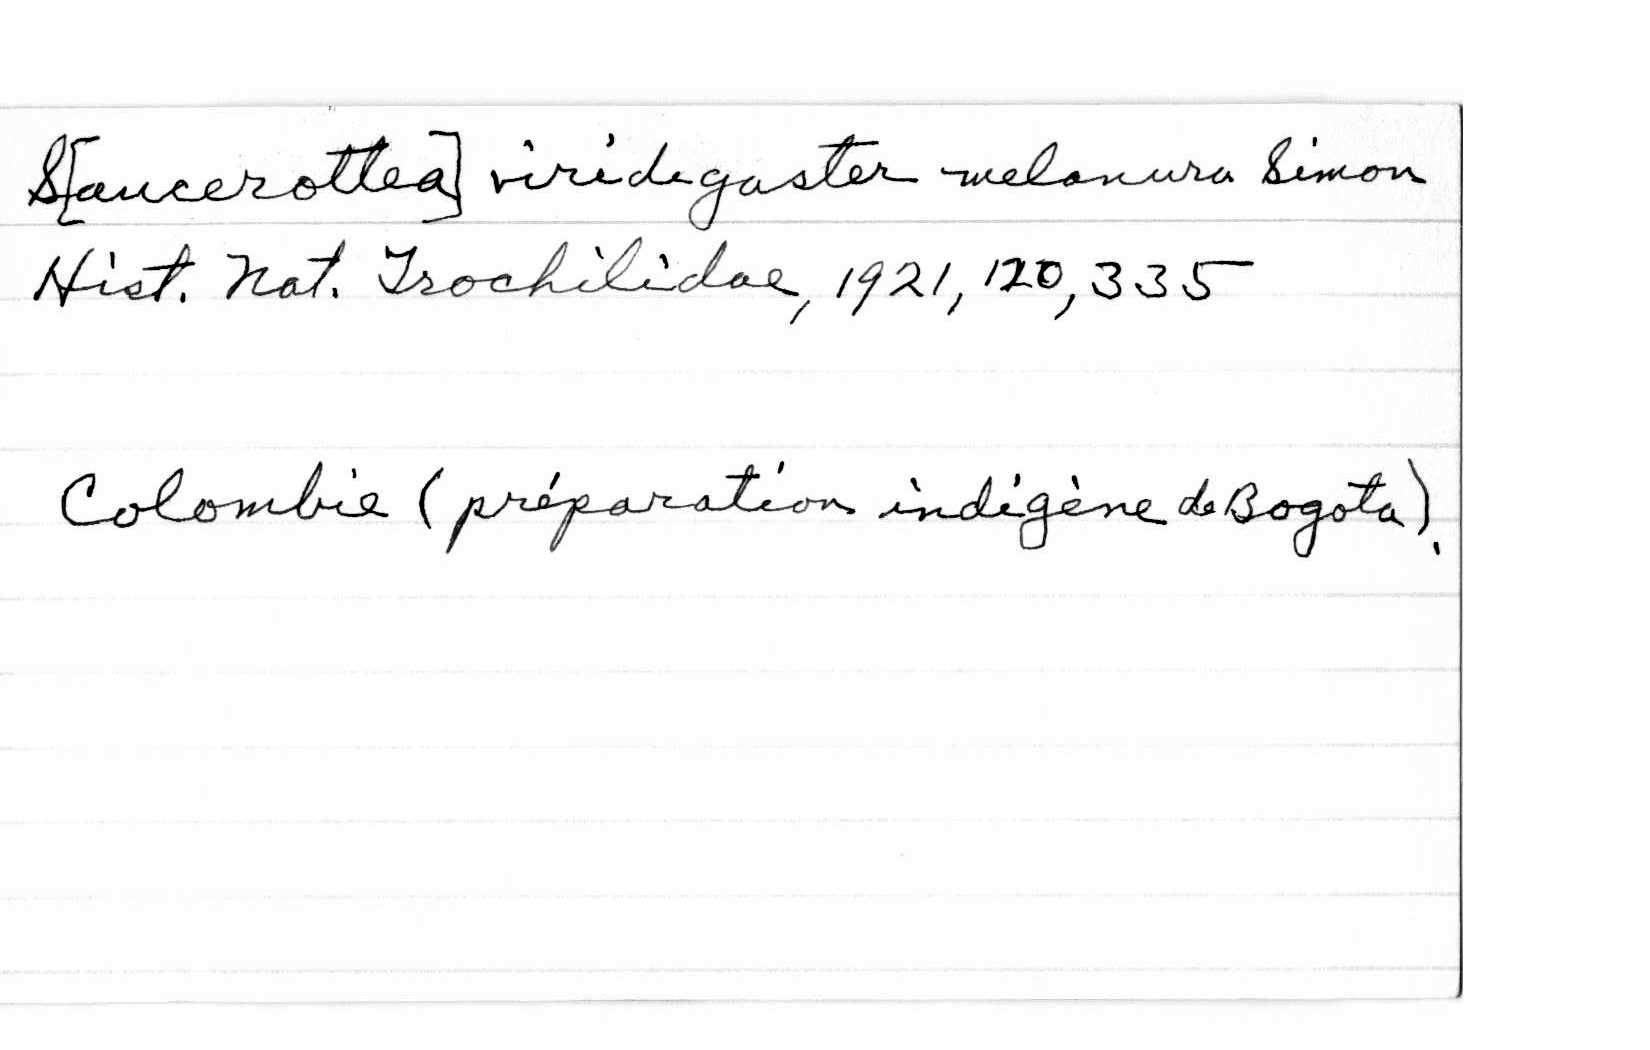 S[aucerottea] viridigaster melanura Simon
Hist. Nat. Trochilidae, 1921, 120, 335
Colombie (préparation indigène de Bogota).